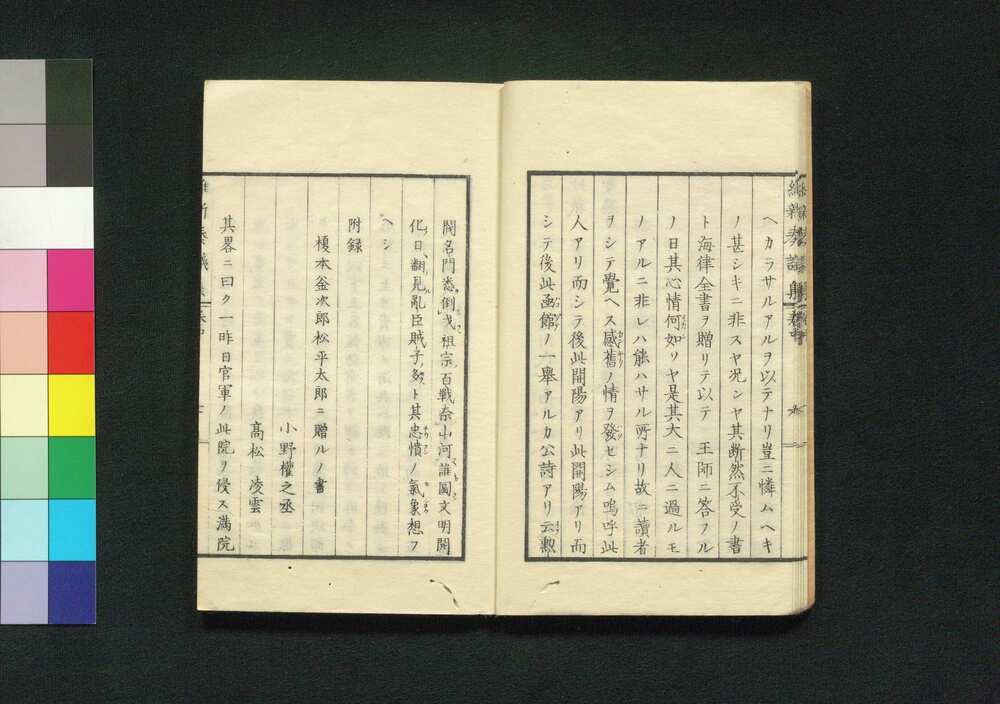 維新奏議集
ヘカラサルアルヲ以テナリ豈ニ憐ムヘキ
ノ甚シキニ非スヤ况ンヤ其断然不受ノ書
ト海律全書ヲ贈リテ以テ 王師ニ答フル
ノ日其心情何如ソヤ是其大ニ人ニ過ルモ
ノアルニ非レハ能ハサル所ナリ故ニ讀者
ヲシテ覺ヘス感舊ノ情ヲ發セシム嗚呼此
人アリ而シテ後此開陽アリ此開陽アリ而
シテ後此函館ノ一舉アルカ公詩アリ云勲
閥名門悉倒戈祖宗百戰奈山河誰圖文明開
化日翻見亂臣賊子多ト其忠憤ノ氣象想フ
ヘシ
附録
榎本釜次郎松平太郎ニ贈ルノ書
小野權之丞
髙松凌雲
其畧ニ曰ク一昨日官軍ノ此院ヲ侵ス滿院